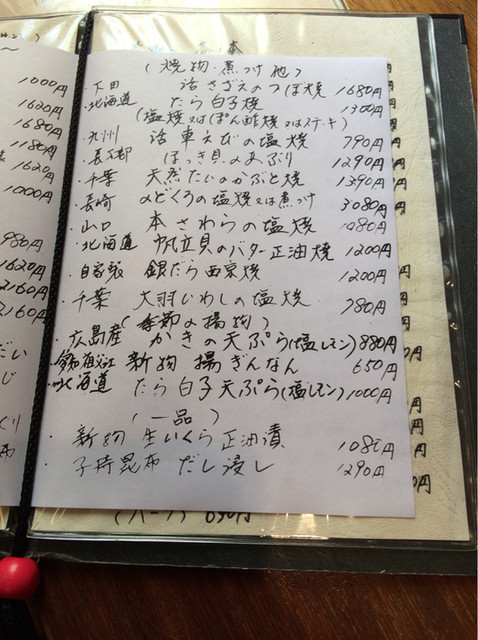 1000円
1620円
1680円
1180円
1620円
1000円
980円
1620円
2160円
2160円
(焼物・煮つけ他)
・下田 活さざえのつぼ焼 1680円
・北海道 たら白子焼 1300円
(塩焼又はぽん酢焼又はステーキ)
・九州 活車えびの塩焼 790円
・長万部 ほっき貝のあぶり 1290円
・千葉 天然たいのかぶと焼 1390円
・長崎 のどくろの塩焼又は煮つけ 3080円
・山口 本さわらの塩焼 1080円
・北海道 帆立貝のバター正油焼 1200円
・自家製 銀だら西京焼 1200円
・千葉 大羽いわしの塩焼 780円
(季節の揚物)
・広島産 かきの天ぷら(塩レモン) 880円
新物 揚ぎんなん 650円
・北海道 たら白子天ぷら(塩レモン) 1000円
(一品)
・新物 生いくら正油漬 1080円
・子持昆布だし浸し 1290円
(ハーフ) 650円